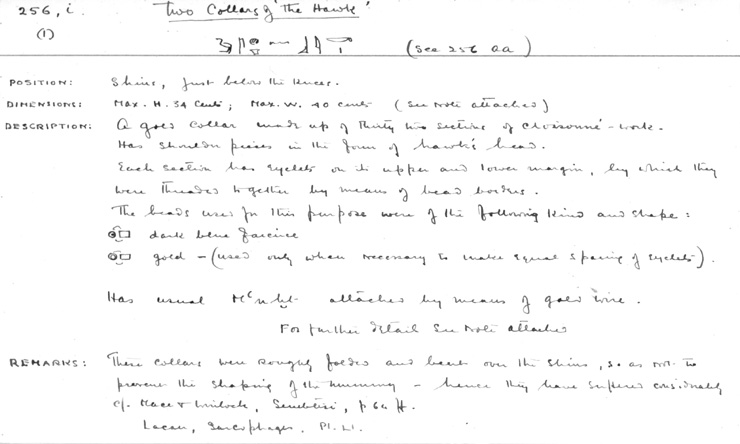 256, i.
(1)
Two Collars of 'The Hawk'
(See 256 aa)
POSITION: Shins, just below the knees.
DIMENSIONS: Max. H. 34 cents; Max. W. 40 cents (See Note attached)
DESCRIPTION: A gold collar made up of thirty two sections of cloisonné-work.
Has shoulder pieces in the form of hawk's head.
Each section has eyelets on its upper and lower margin, by which they
were threaded together by means of bead borders.
The beads used for this purpose were of the following kind and shape:
dark blue faience
gold - (used only when necessary to make equal spacing of eyelets).
Has usual attached by means of gold wire.
For further detail see Note attached
REMARKS: These collars were roughly folded and bent over the shins, so as not to
prevent the shaping of the mummy - hence they have suffered considerably
cf. Mace & Winlock, Senebtisi, p 64 ff.
Lacau, Sarcophages, Pl. LI.